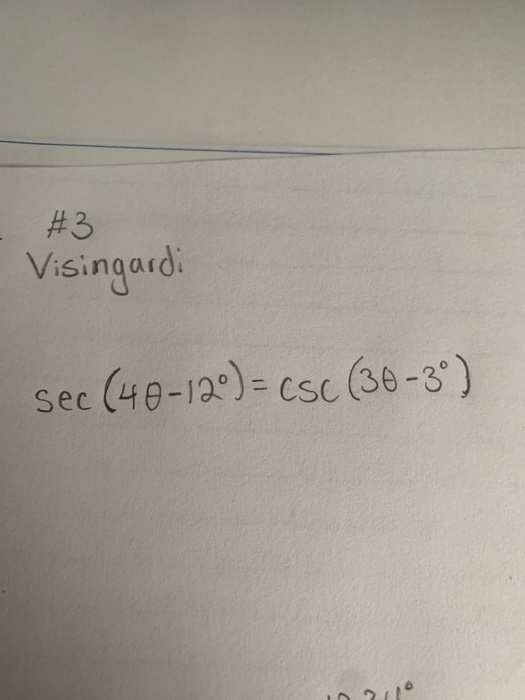 #3
Visingardi
sec (4θ-12°) = csc (3θ-3°)